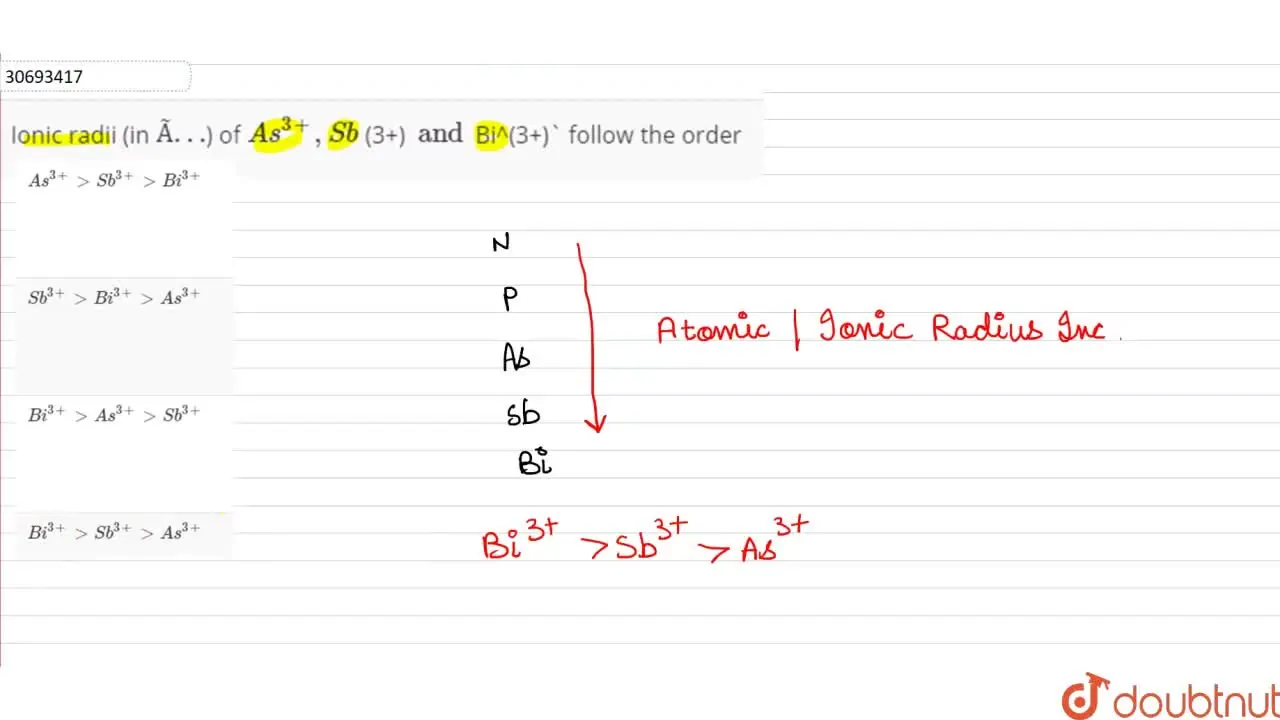 30693417
Ionic radii (in Ã...) of As³⁺, Sb (3+) and Bi^(3+)` follow the order
As³⁺ > Sb³⁺ > Bi³⁺
Sb³⁺ > Bi³⁺ > As³⁺
Bi³⁺ > As³⁺ > Sb³⁺
Bi³⁺ > Sb³⁺ > As³⁺
N
P
As
Sb
Bi
Atomic | Ionic Radius Inc.
Bi³⁺ > Sb³⁺ > As³⁺
doubtnut